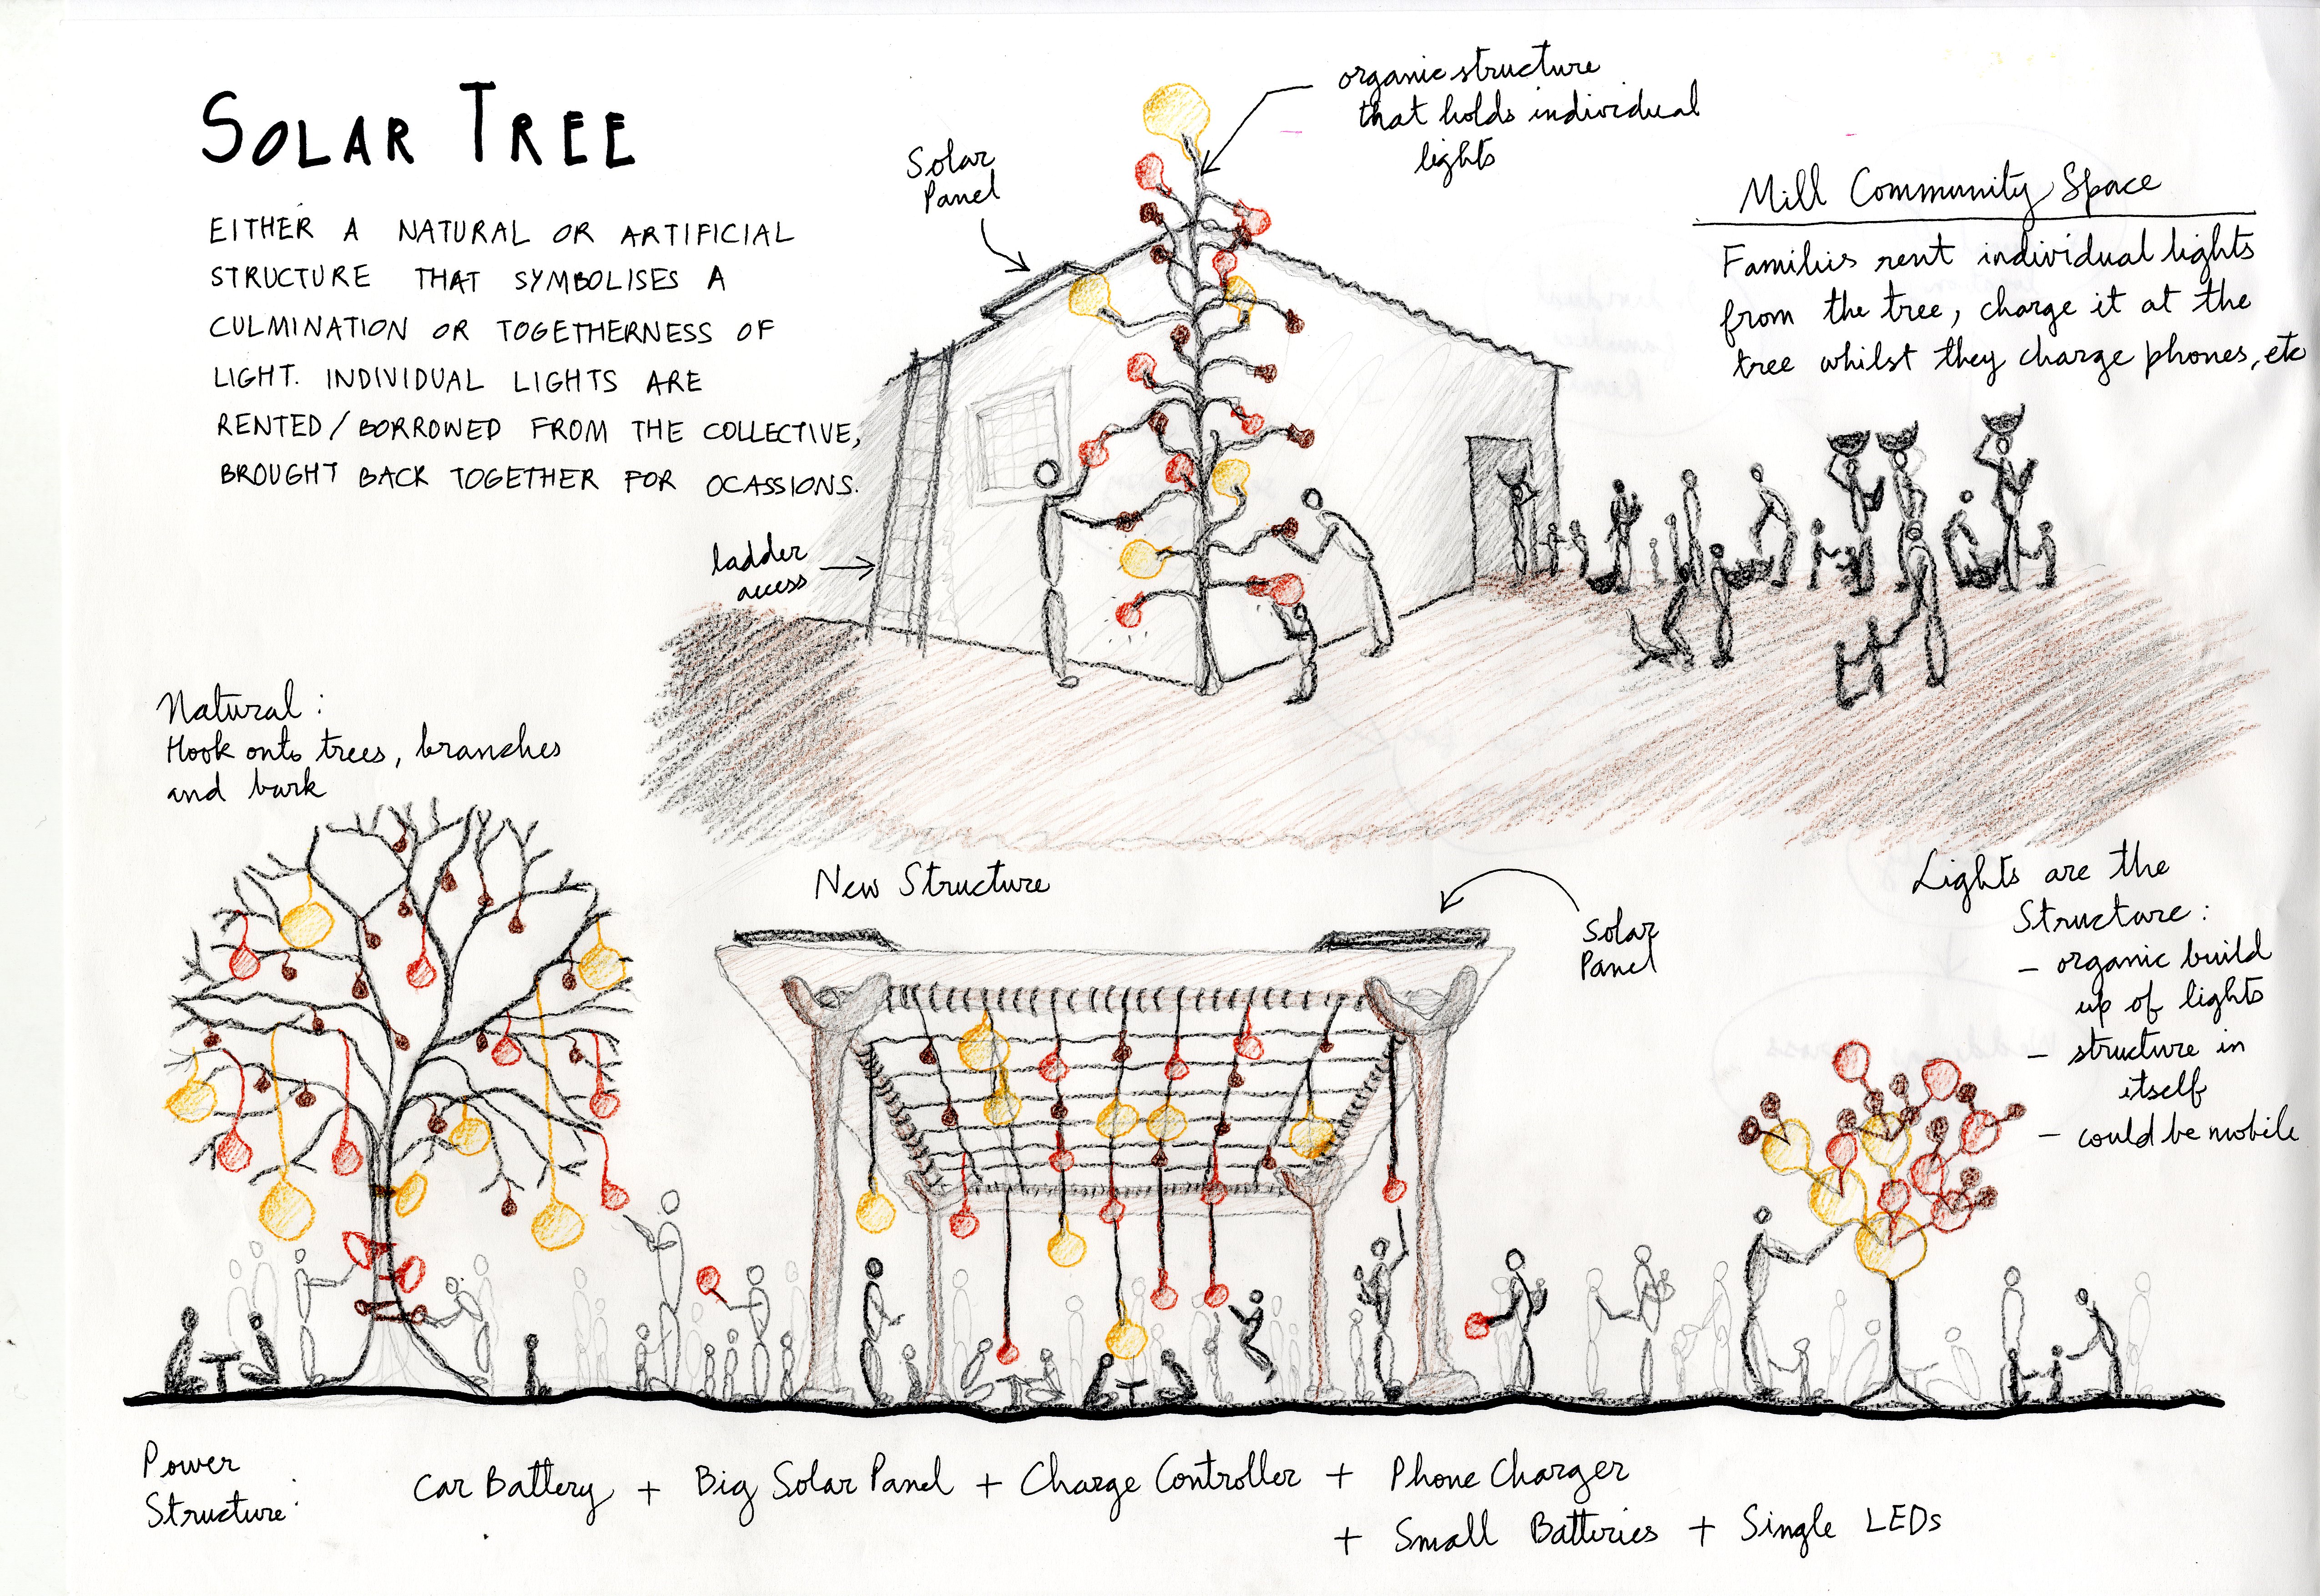 SOLAR TREE
EITHER A NATURAL OR ARTIFICIAL
STRUCTURE THAT SYMBOLISES A
CULMINATION OR TOGETHERNESS OF
LIGHT. INDIVIDUAL LIGHTS ARE
RENTED/BORROWED FROM THE COLLECTIVE,
BROUGHT BACK TOGETHER FOR OCASSIONS.
Solar
Panel
organic structure
that holds individual
lights
Mill Community Space
Families rent individual lights
from the tree, charge it at the
tree whilst they charge phones, etc
ladder
access
Natural:
Hook onto trees, branches
and bark
New Structure
Solar
Panel
Lights are the
Structure:
- organic build
up of lights
- structure in
itself
- could be mobile
Power
Structure:
Car Battery + Big Solar Panel + Charge Controller + Phone Charger
+ Small Batteries + Single LEDs